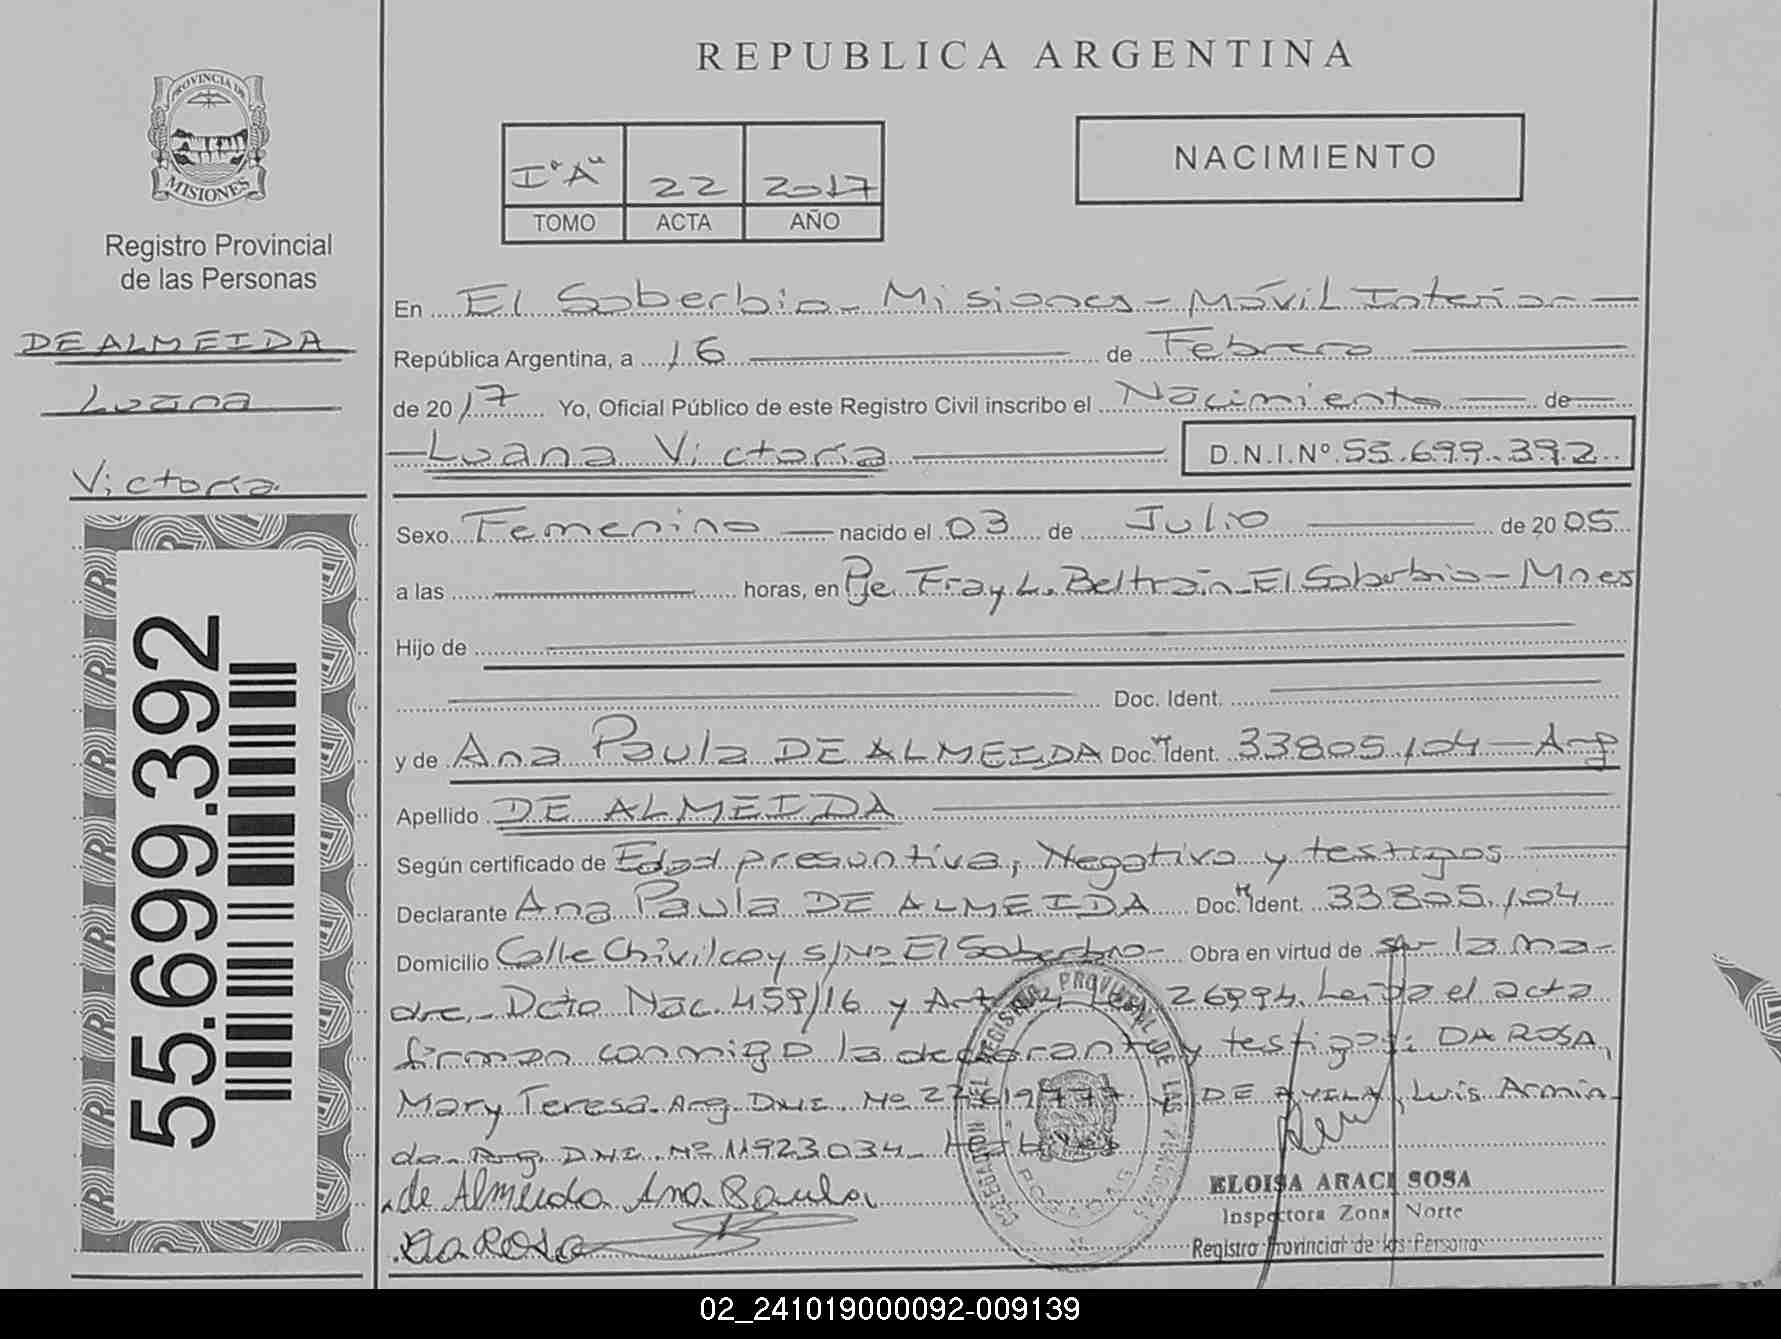 REPUBLICA ARGENTINA
PROVINCIA DE
MISIONES
Registro Provincial
de las Personas
DE ALMEIDA
Luana
Victoria
55.699.392
I° "A" 22 2017
TOMO ACTA AÑO
NACIMIENTO
En El Soberbio - Misiones - Móvil Interior
República Argentina, a 16 de Febrero
de 2017 Yo, Oficial Público de este Registro Civil inscribo el Nacimiento de
Luana Victoria D.N.I.Nº 55.699.392
Sexo Femenino nacido el 03 de Julio de 2005
a las horas, en Pje. Fray L. Beltrán - El Soberbio - Mnes
Hijo de
Doc. Ident.
y de Ana Paula DE ALMEIDA Doc. Ident. 33805.104 - Arg
Apellido DE ALMEIDA
Según certificado de Edad presuntiva, Negativo y testigos
Declarante Ana Paula DE ALMEIDA Doc. Ident. 33.805.104
Domicilio Calle Chivilcoy s/Nº El Soberbio - Obra en virtud de ser la ma-
dre.- Dcto Nac. 459/16 y Art. Ley 26994. Leída el acta
firman conmigo la declarante y testigos: DA ROSA,
Mary Teresa - Arg. DNI. Nº y DE AVILA, Luis Armin-
do - Arg. DNI. Nº 11923034 -
de Almeida Ana Paula
Da Rosa
ELOISA ARACI SOSA
Inspectora Zona Norte
Registro Provincial de las Personas
02_241019000092-009139